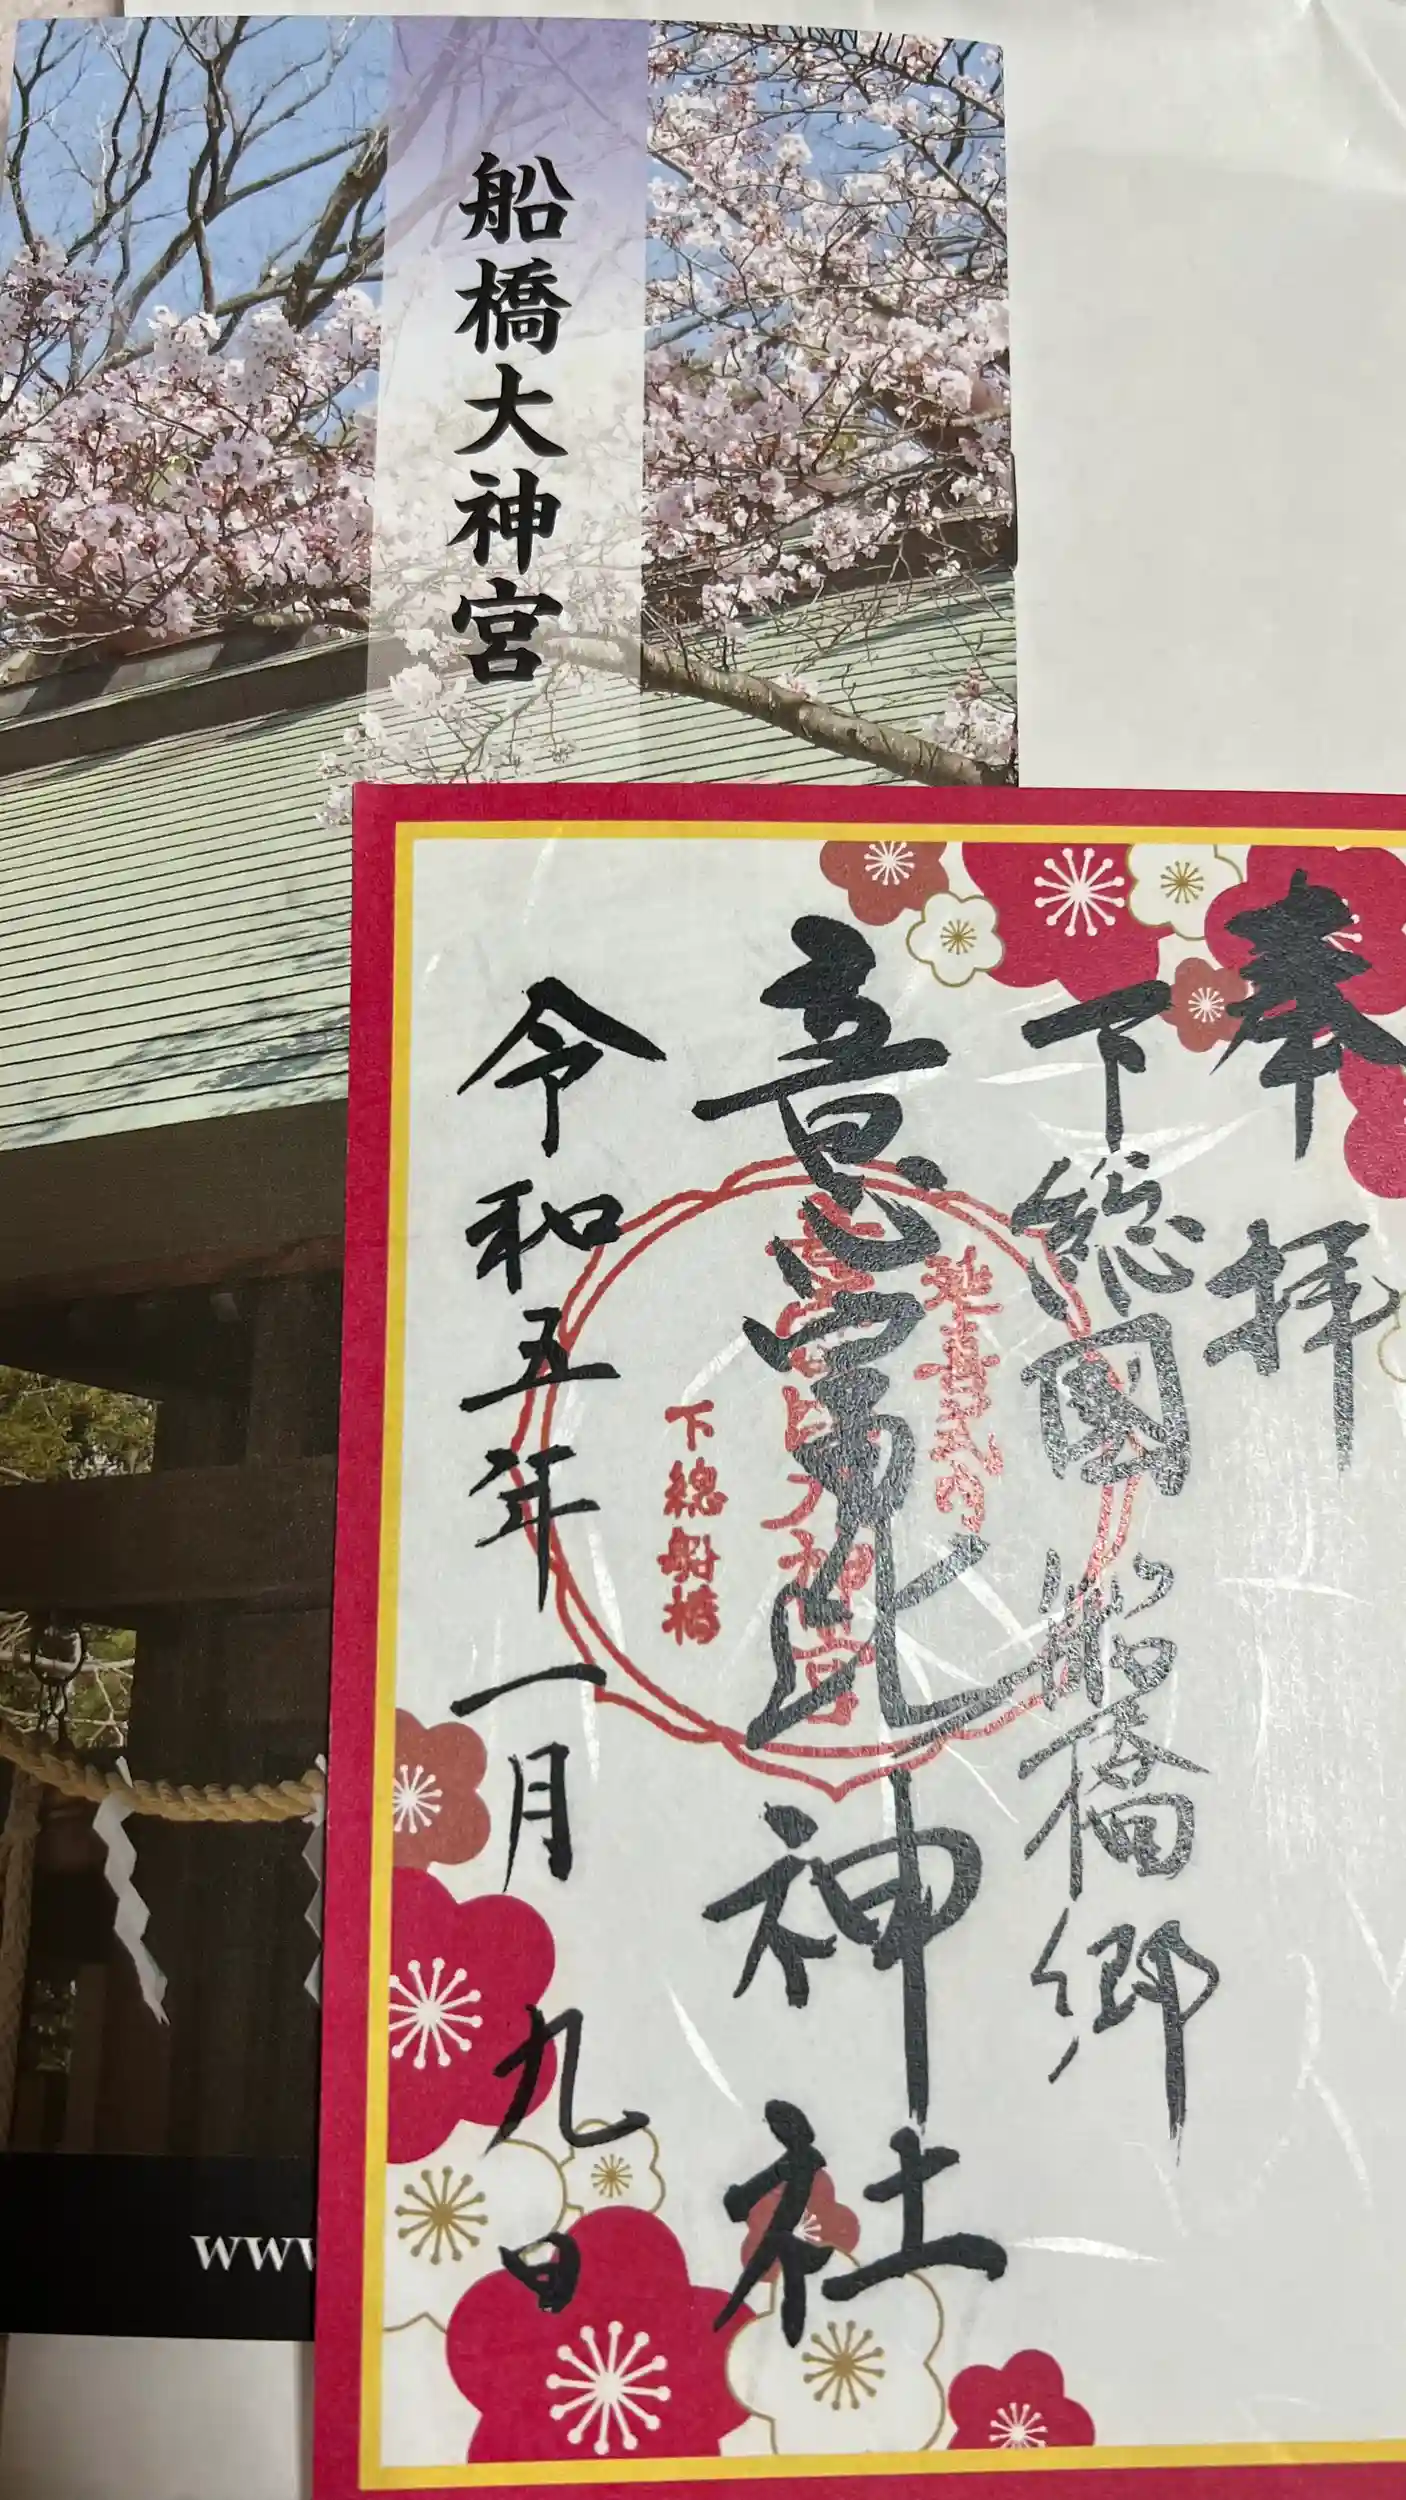 船橋大神宮
奉拝
下総國船橋郷
意富比神社
令和五年一月九日
延喜式内
意富比大神宮
下總船橋
www.